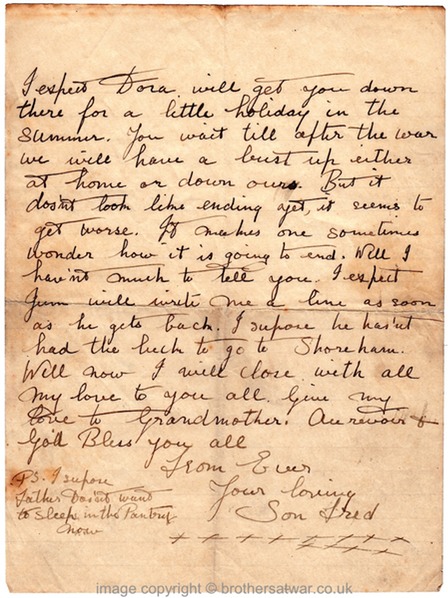 I expect Dora will get you down
there for a little holiday in the
summer. You wait till after the war
we will have a bust up either
at home or down ours. But it
dosn't look like ending yet, it seems to
get worse. It makes one sometimes
wonder how it is going to end. Will I
hav'nt much to tell you. I expect
Jum will write me a line as soon
as he gets back. I supose he has'nt
had the luck to go to Shoreham.
Well now I will close with all
my love to you all. Give my
love to Grandmother. Au revoir &
God Bless you all
From Ever
Your loving
Son Fred
PS. I supose
father Dosn't want
to sleep in the Pantry
now
+ + + + + + + + +
+ + + + +
image copyright © brothersatwar.co.uk